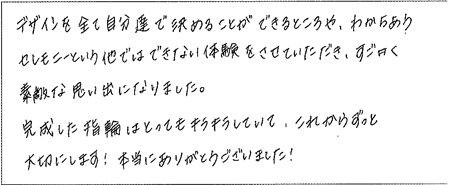 デザインを全て自分達で決めることができるところや、わからあう
セレモニーという他ではできない体験をさせていただき、すごく
素敵な思い出になりました。
完成した指輪はとってもキラキラしていて、これからずっと
大切にします！本当にありがとうございました！